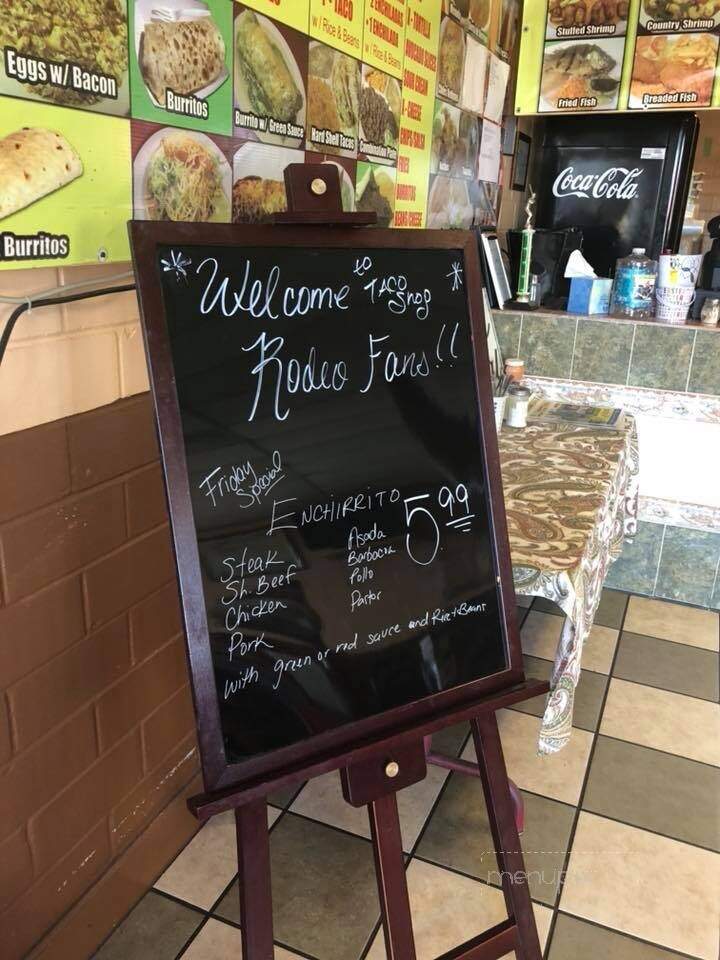 Eggs w/ Bacon
Burritos
Burrito w/ Green Sauce
Hard Shell Tacos
Combination Plate
Burritos
1-TACO
w/ Rice & Beans
2 ENCHILADAS
+1 ENCHILADA
w/ Rice & Beans
SOUR CREAM
BURRITO
BEANS/CHEESE
Stuffed Shrimp
Country Shrimp
Fried Fish
Breaded Fish
Coca-Cola
* Welcome to TACO Shop *
Rodeo Fans!!
Friday
Special
ENCHIRRITO 5.99
Steak Asada
Sh. Beef Barbacoa
Chicken Pollo
Pork Pastor
with green or red sauce and Rice & Beans
menupix